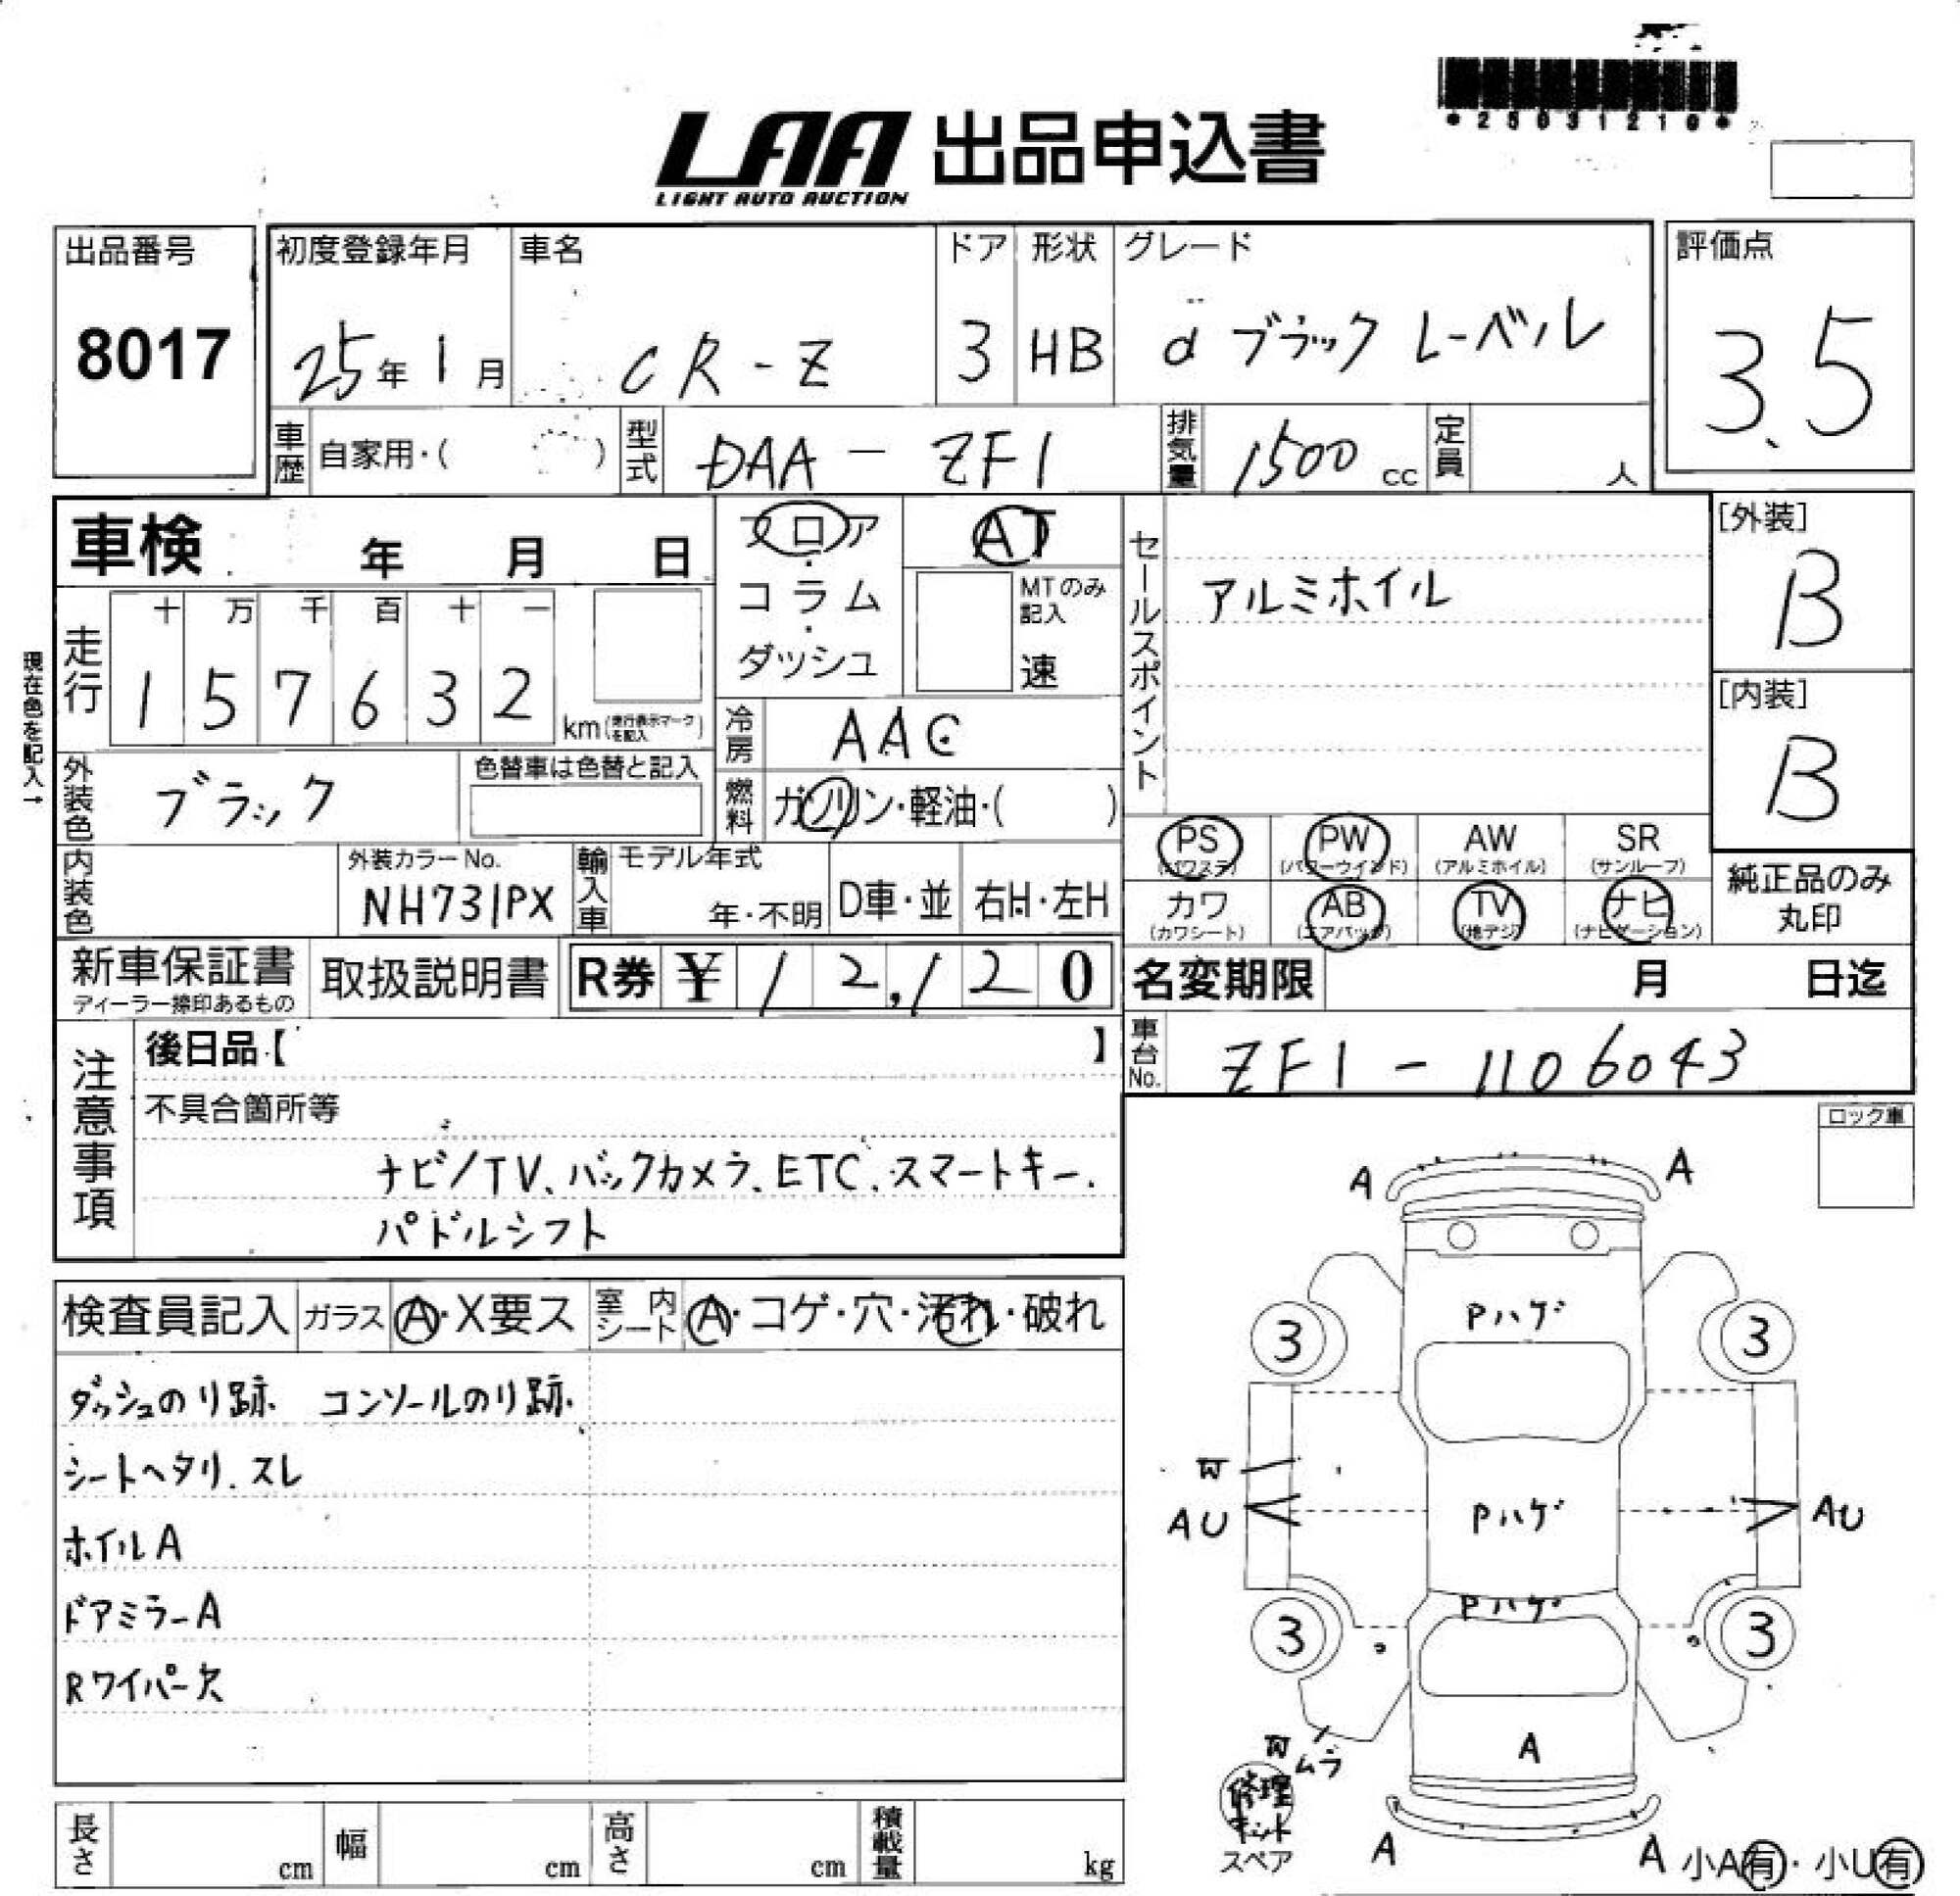 *25031210*
LAA 出品申込書
LIGHT AUTO AUCTION
出品番号
8017
初度登録年月
25年1月
車名
CR-Z
ドア
3
形状
HB
グレード
α ブラックレーベル
評価点
3.5
車歴
自家用・( )
型式
DAA-ZF1
排気量
1500 cc
定員
人
車検 年 月 日
フロア・コラム・ダッシュ
AT
MTのみ記入
速
セールスポイント
アルミホイル
[外装]
B
[内装]
B
現在色を記入→
走行
十 万 千 百 十 一
1 5 7 6 3 2
km(走行表示マークを記入)
冷房
AAC
燃料
ガソリン・軽油・( )
外装色
ブラック
色替車は色替と記入
内装色
外装カラーNo.
NH731PX
輸入車
モデル年式
年・不明
D車・並
右H・左H
PS (パワステ)
PW (パワーウインド)
AW (アルミホイル)
SR (サンルーフ)
カワ (カワシート)
AB (エアバッグ)
TV (地デジ)
ナビ (ナビゲーション)
純正品のみ
丸印
新車保証書
ディーラー捺印あるもの
取扱説明書
R券 ¥12,120
名変期限 月 日迄
車台No.
ZF1-1106043
注意事項
後日品【 】
不具合箇所等
ナビ/TV、バックカメラ、ETC、スマートキー、
パドルシフト
ロック車
検査員記入
ガラス
A・X要ス
室内シート
A・コゲ・穴・汚れ・破れ
ダッシュのり跡、コンソールのり跡、
シートヘタリ、スレ
ホイルA
ドアミラーA
Rワイパー欠
A A
Pハゲ
3 3
W
AU Pハゲ AU
Pハゲ
3 3
W ムラ
A
修理キット
スペア
A A
小A有・小U有
長さ cm
幅 cm
高さ cm
積載量 kg